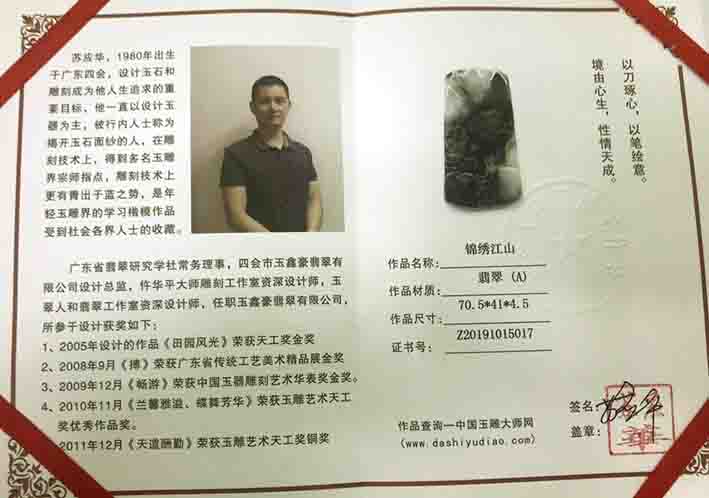 苏应华，1980年出生
于广东四会，设计玉石和
雕刻成为他人生追求的重
要目标、他一直以设计玉
器为主，被行内人士称为
揭开玉石面纱的人，在雕
刻技术上，得到多名玉雕
界宗师指点，雕刻技术上
更有青出于蓝之势，是年
轻玉雕界的学习楷模作品
受到社会各界人士的收藏。
广东省翡翠研究学社常务理事，四会市玉鑫豪翡翠有
限公司设计总监，忤华平大师雕刻工作室资深设计师，玉
翠人和翡翠工作室资深设计师，任职玉鑫豪翡翠有限公司，
所参于设计获奖如下：
1、2005年设计的作品《田园风光》荣获天工奖金奖
2、2008年9月《搏》荣获广东省传统工艺美术精品展金奖
3、2009年12月《畅游》荣获中国玉器雕刻艺术华表奖金奖。
4、2010年11月《兰馨雅溢、蝶舞芳华》荣获玉雕艺术天工
奖优秀作品奖。
2011年12月《天道酬勤》荣获玉雕艺术天工奖铜奖
以刀琢心，以笔绘意。
境由心生，性情天成。
作品名称：锦绣江山
作品材质：翡翠 (A)
作品尺寸：70.5*41*4.5
证书号：Z20191015017
签名：
盖章：
作品查询—中国玉雕大师网
(www.dashiyudiao.com)